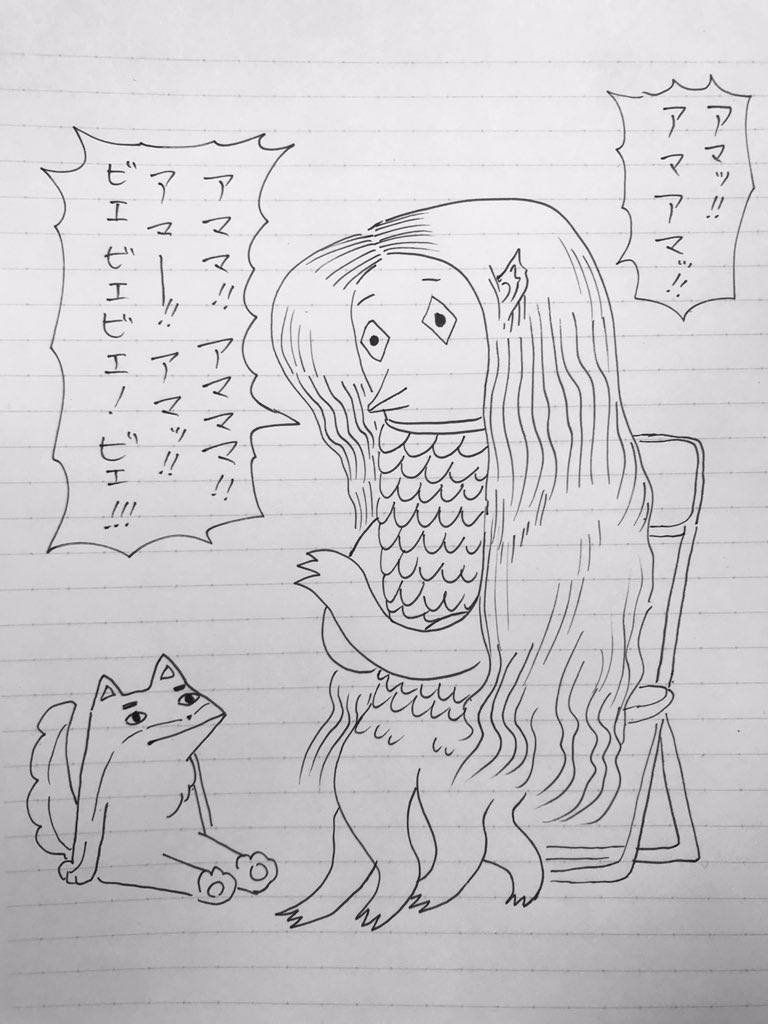 アマッ!!
アマアマッ!!
アママ!! アマママ!!
アマー!! アマッ!!
ビエビエビエ!ビエ!!!